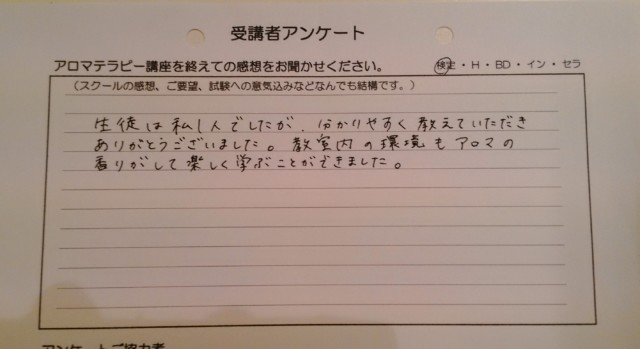 受講者アンケート
アロマテラピー講座を終えての感想をお聞かせください。 検定・H・BD・イン・セラ
（スクールの感想、ご要望、試験への意気込みなどなんでも結構です。）
生徒は私1人でしたが、分かりやすく教えていただき
ありがとうございました。教室内の環境もアロマの
香りがして楽しく学ぶことができました。
アンケートご協力者